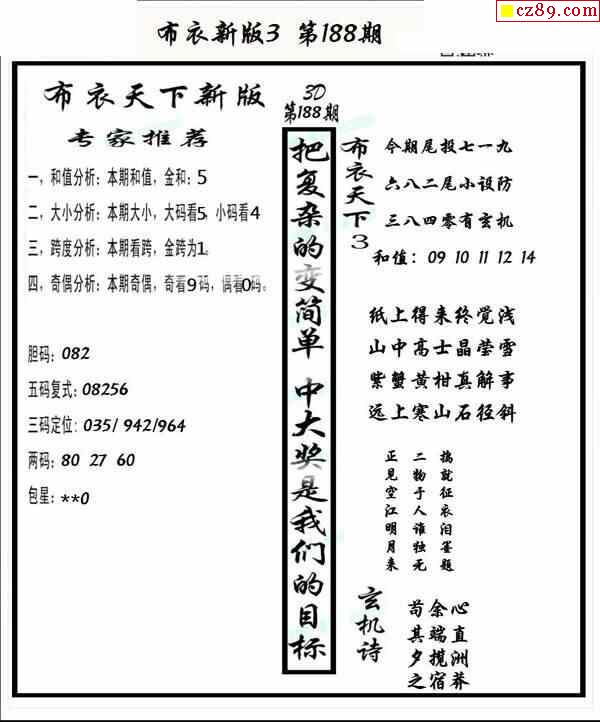 cz89.com
布衣新版3 第188期
布衣天下新版
专家推荐
一，和值分析：本期和值，金和：5
二，大小分析：本期大小，大码看5，小码看4
三，跨度分析：本期看跨，金跨为1。
四，奇偶分析：本期奇偶，奇看9码，偶看0码。
胆码：082
五码复式：08256
三码定位：035/ 942/964
两码：80 27 60
包星：**0
3D
第188期
把复杂的变简单 中大奖是我们的目标
布衣天下3
今期尾投七一九
六八二尾小设防
三八四零有玄机
和值：09 10 11 12 14
纸上得来终觉浅
山中高士晶莹雪
紫蟹黄柑真解事
远上寒山石径斜
搞就征衣泪墨题
二物于人谁独无
正见空江明月来
玄机诗
苟余心
其端直
夕揽洲
之宿莽